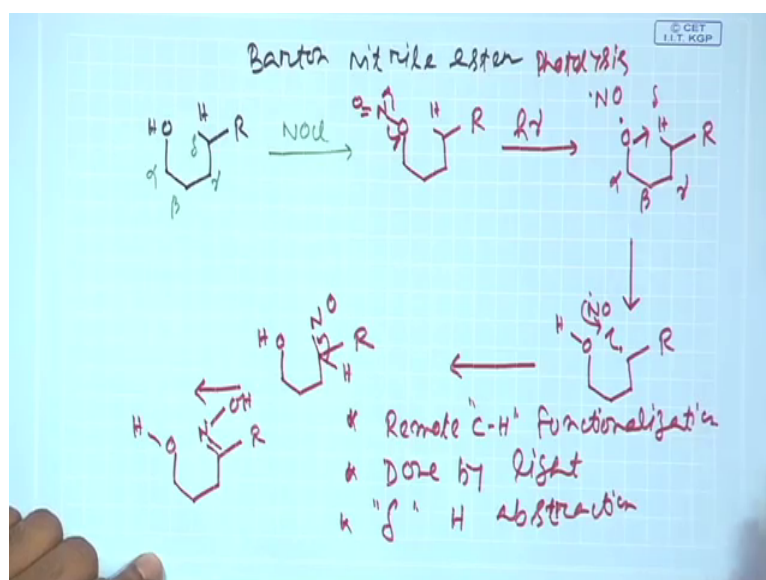 © CET
I.I.T. KGP
Barton nitrile ester photolysis
HO H δ R α β γ
NOCl
O=N O H R
hν
·NO δ
O H R α β γ
H O NO R
H O N O R H
H O N OH R
* Remote "C-H" functionalization
* Done by light
* "δ" H abstraction